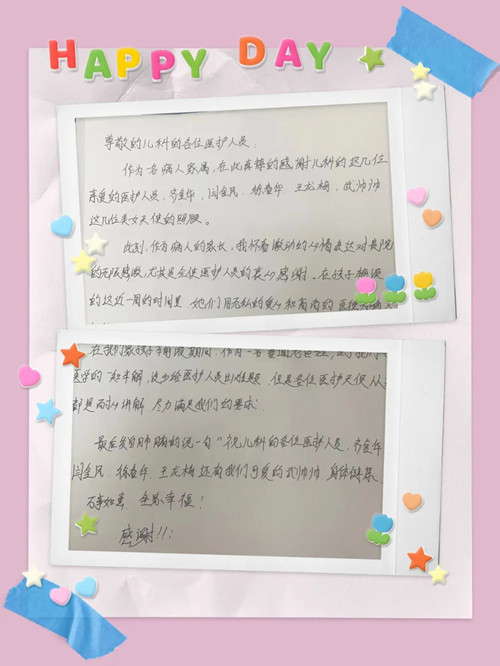 HAPPY DAY
尊敬的儿科的各位医护人员:
作为名病人家属,在此真挚的感谢儿科的这几位
亲爱的医护人员,齐金华、闫金凤、杨查年、王龙梅、武帅帅
这几位美女天使的照顾。
此刻,作为病人的家长,我怀着激动的心情表达对贵院
的无限感激,尤其是全体医护人员的衷心感谢。在孩子输液
的这近一周的时间里,她们用无私的爱心和高尚的医德
在我们家孩子输液期间,作为一名普通
医学的一知半解,进步给医护人员出难题,但是各位医护天使从
都是耐心讲解,尽力满足我们的要求。
最后发自肺腑的说一句"祝儿科的各位医护人员、齐金华
闫金凤、杨查年、王龙梅还有我们可爱的武帅帅 身体健康
万事如意,全家幸福!
感谢!!!